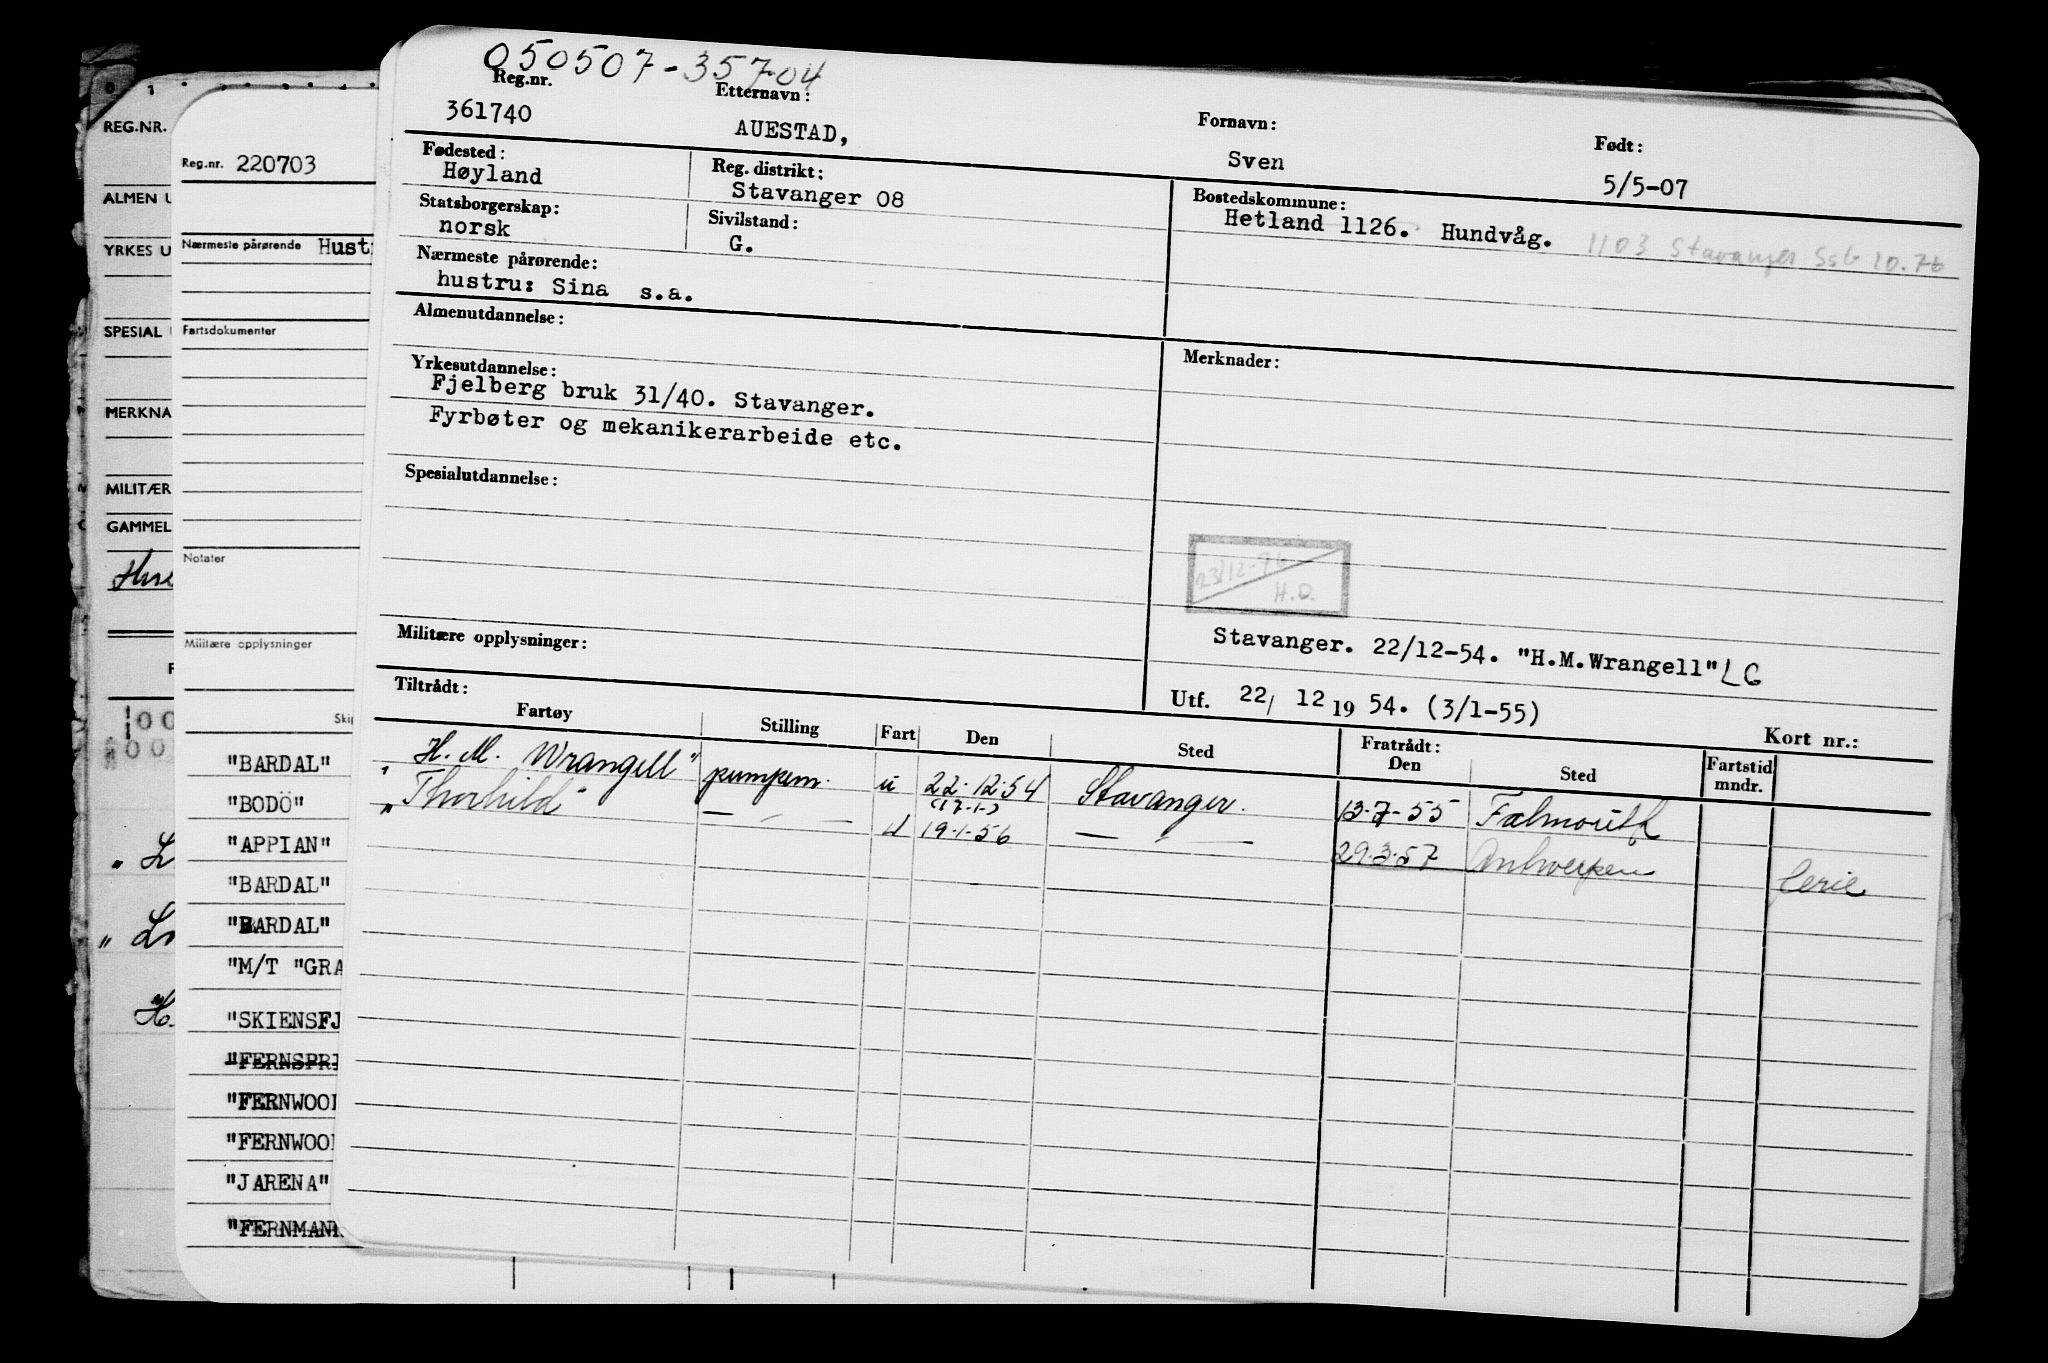 050507-35704
Reg.nr. Etternavn: Fornavn: Født:
361740 AUESTAD, Sven 5/5-07
Fødested: Reg. distrikt: Bostedskommune:
Høyland Stavanger 08 Hetland 1126. Hundvåg. 1103 Stavanger SsB 10.76
Statsborgerskap: Sivilstand:
norsk G.
Nærmeste pårørende:
hustru: Sina s.a.
Almenutdannelse:
Yrkesutdannelse: Merknader:
Fjelberg bruk 31/40. Stavanger.
Fyrbøter og mekanikerarbeide etc.
Spesialutdannelse:
23/12-76
H.O.
Militære opplysninger: Stavanger. 22/12-54. "H.M.Wrangell" LG
Utf. 22/ 12 19 54. (3/1-55)
Tiltrådt: Fratrådt: Kort nr.:
Fartøy Stilling Fart Den Sted Den Sted Fartstid mndr.
H. M. Wrangell" pumpem. u 22.12.54 Stavanger. 13-7-55 Falmouth
(17-1-)
"Thorhild" — " — u 19.1.56 — " — 29.3.57 Antwerpen ferie
Reg.nr. 220703
Nærmeste pårørende
Fartsdokumenter
Notater
Militære opplysninger
"BARDAL"
"BODÖ"
"APPIAN"
"BARDAL"
"BARDAL"
"M/T "GRA
"SKIENSFJ
"FERNSPRI
"FERNWOO
"FERNWOO
"JARENA"
"FERNMAN
REG.NR.
ALMEN U
YRKES U
SPESIAL
MERKNA
MILITÆR
GAMMEL